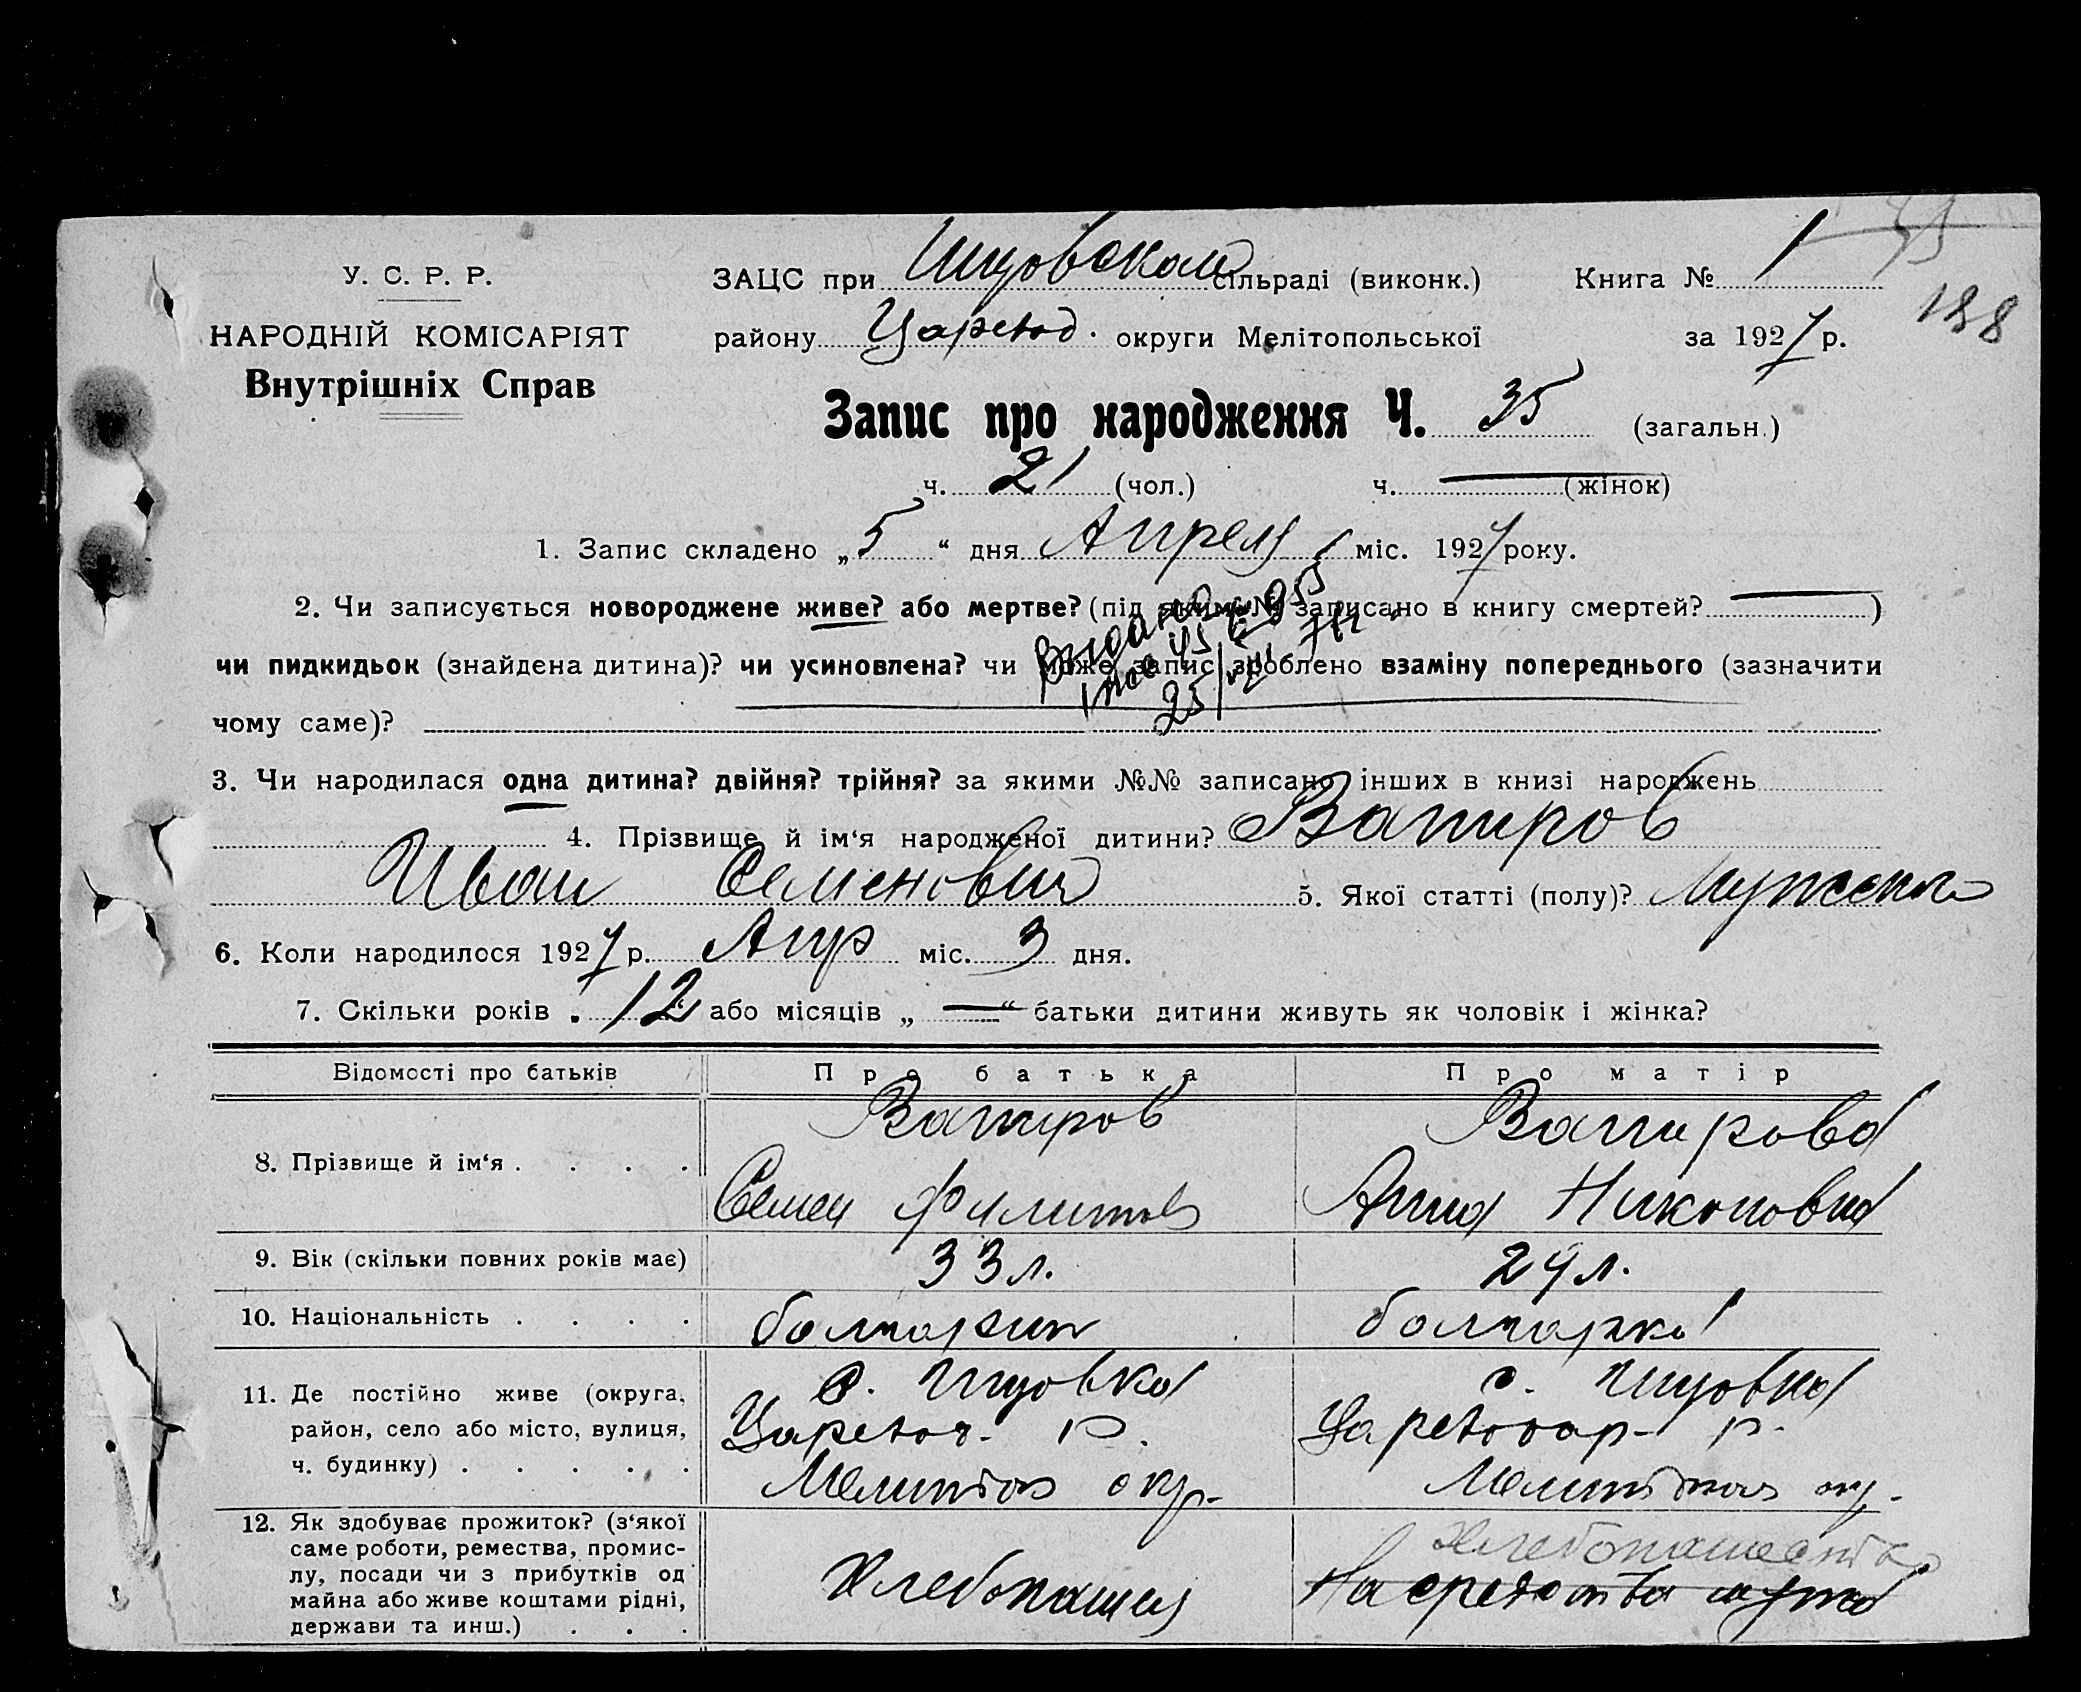 У. С. Р. Р.
НАРОДНІЙ КОМІСАРІЯТ
Внутрішніх Справ
ЗАЦС при сільраді (виконк.) Книга № 1
району Царевод. округи Мелітопольської за 1927 р.
188
Запис про народження Ч. 35 (загальн.)
ч. 21 (чол.) ч. — (жінок)
1. Запис складено „5“ дня Апреля міс. 1927 року.
2. Чи записується новороджене живе? або мертве? (під яким № записано в книгу смертей? — )
чи пидкидьок (знайдена дитина)? чи усиновлена? чи може запис зроблено взаміну попереднього (зазначити
чому саме)?
3. Чи народилася одна дитина? двійня? трійня? за якими №№ записано інших в книзі народжень
4. Прізвище й ім‘я народженої дитини? Вапиров
Иван Семенович 5. Якої статті (полу)? Мужского
6. Коли народилося 1927 р. Апр міс. 3 дня.
7. Скільки років „12“ або місяців „—“ батьки дитини живуть як чоловік і жінка?
Відомості про батьків Про батька Про матір
8. Прізвище й ім‘я . . . . Вапиров Вапирова
Семен Филипов Анна Никоновна
9. Вік (скільки повних років має) 33 л. 29 л.
10. Національність . . . . болгарин болгарка
11. Де постійно живе (округа,
район, село або місто, вулиця,
ч. будинку) . . . . .
Царевод. р. Цареводар- р.
Мелитоп окр.
12. Як здобуває прожиток? (з‘якої
саме роботи, ремества, промис-
лу, посади чи з прибутків од
майна або живе коштами рідні,
держави та инш.) . . .
Хлебопашец
Хлебопашество
На средства мужа